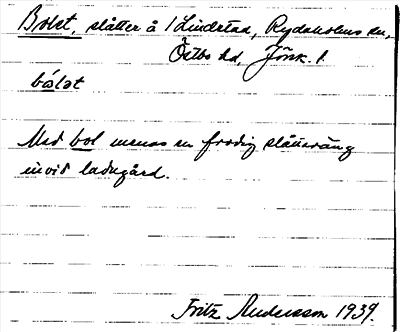 Bolet, slåtter å 1 Lindstad, Rydaholms sn,
Östbo hd, Jönk. l.
bólət
Med bol menas en frodig slåtteräng
invid ladugård.
Fritz Andersson 1939.